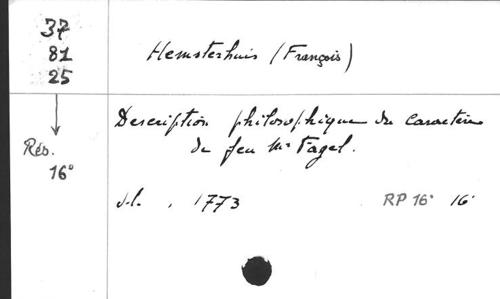 37
81
25
Hemsterhuis (François)
Description philosophique du caractère
de feu Mr Fagel.
Rés.
16°
s.l. , 1773
RP 16° 16°